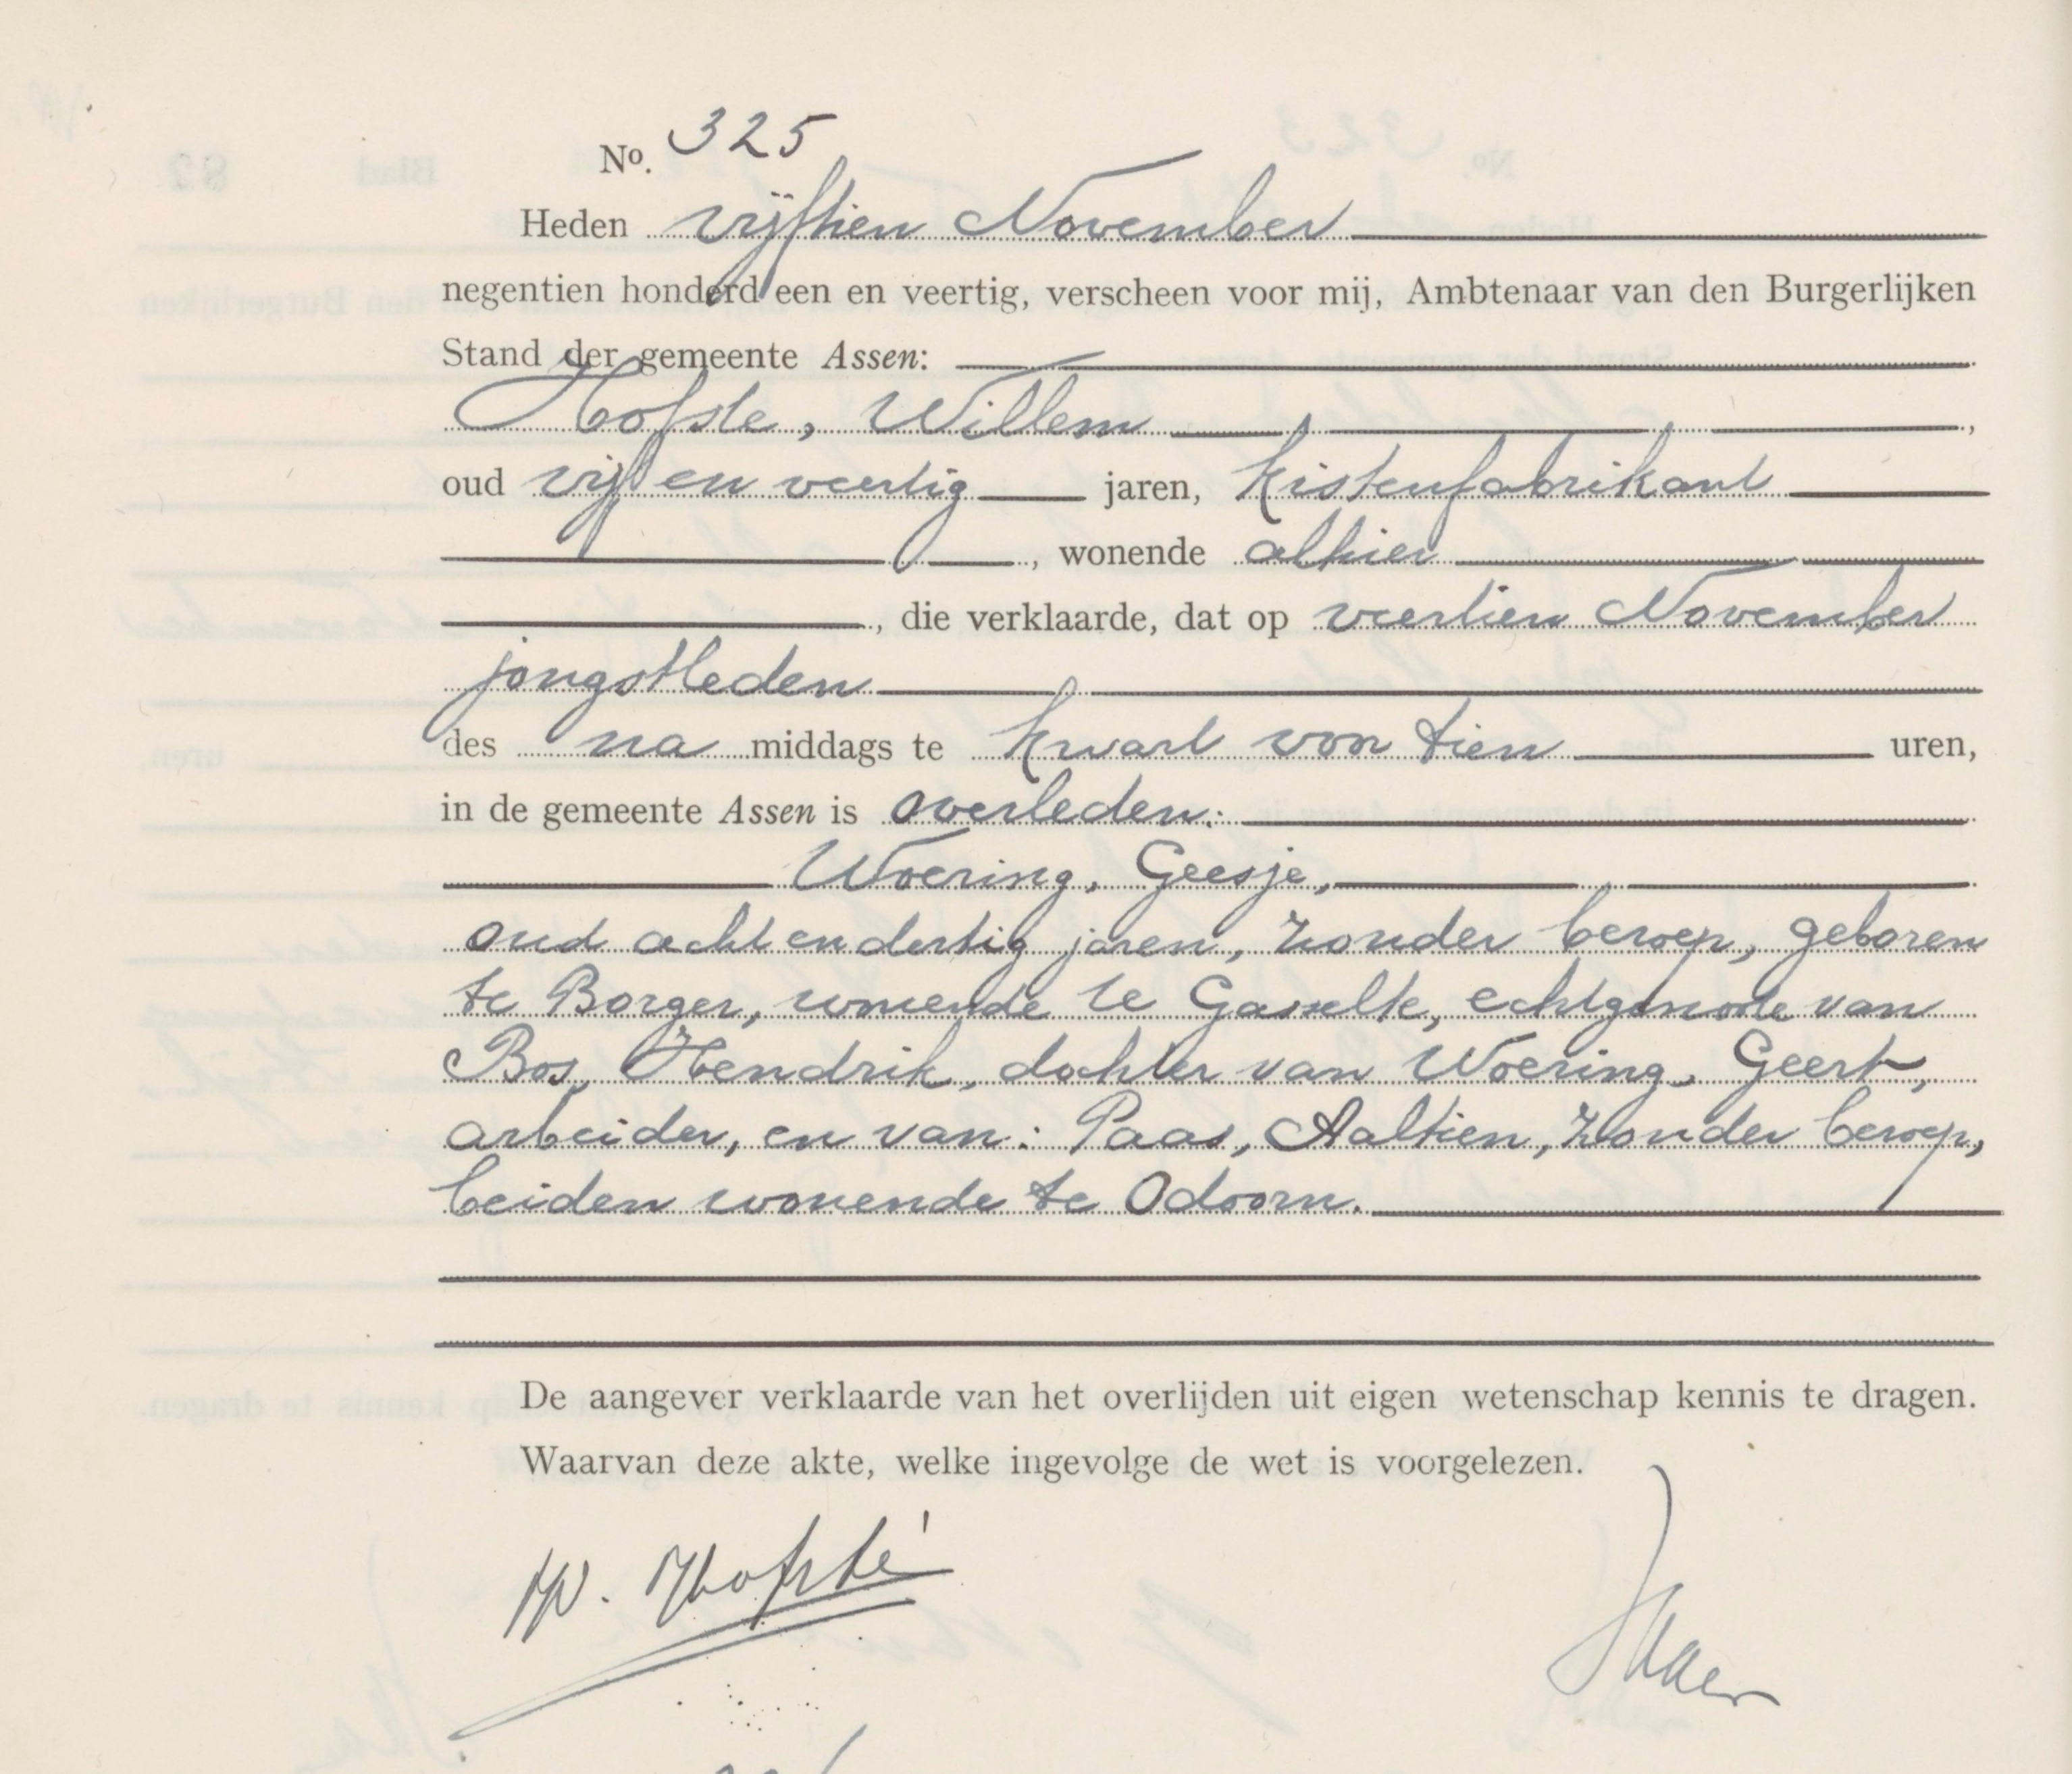 No. 325
Heden vijftien November
negentien honderd een en veertig, verscheen voor mij, Ambtenaar van den Burgerlijken
Stand der gemeente Assen:
Hofste, Willem ,
oud vijf en veertig jaren, kistenfabrikant
, wonende alhier
, die verklaarde, dat op veertien November
jongstleden
des na middags te kwart voor tien uren,
in de gemeente Assen is overleden:
Woering, Geesje,
oud acht en dertig jaren, zonder beroep, geboren
te Borger, wonende te Gasselte, echtgenoote van
Bos, Hendrik, dochter van Woering, Geert,
arbeider, en van: Paas, Aaltien, zonder beroep,
beiden wonende te Odoorn.
De aangever verklaarde van het overlijden uit eigen wetenschap kennis te dragen.
Waarvan deze akte, welke ingevolge de wet is voorgelezen.
W. Hofsté